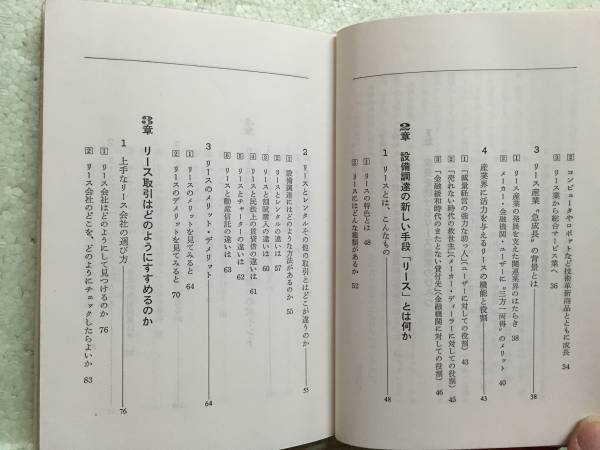 ② コンピュータやロボットなど技術革新商品とともに成長 34
③ リース業から総合サービス業へ 36
3 リース産業〝急成長〟の背景とは 38
① リース産業の発展を支えた関連業界のはたらき 38
② メーカー・金融機関・ユーザーに〝三方一両得〟のメリット 40
4 産業界に活力を与えるリースの機能と役割 43
① 「減量経営の強力な助っ人」(ユーザーに対しての役割) 43
② 「売れない時代の救世主」(メーカー・ディーラーに対しての役割) 45
③ 「金融緩和時代のまたとない貸付先」(金融機関に対しての役割) 46
2章 設備調達の新しい手段「リース」とは何か
1 リースとは、こんなもの 48
① リースの特色とは 48
② リースにはどんな種類があるか 52
2 リースとレンタルその他の取引とはどこが違うのか 55
① 設備調達にはどのような方法があるのか 55
② リースとレンタルの違いは 57
③ リースと割賦購入の違いは 60
④ リースと民法上の賃貸借の違いは 61
⑤ リースとチャーターの違いは 62
⑥ リースと動産信託の違いは 63
3 リースのメリット・デメリット 64
① リースのメリットを見てみると 64
② リースのデメリットを見てみると 70
3章 リース取引はどのようにすすめるのか
1 上手なリース会社の選び方 76
① リース会社はどのようにして見つけるのか 76
② リース会社のどこを、どのようにチェックしたらよいか 83